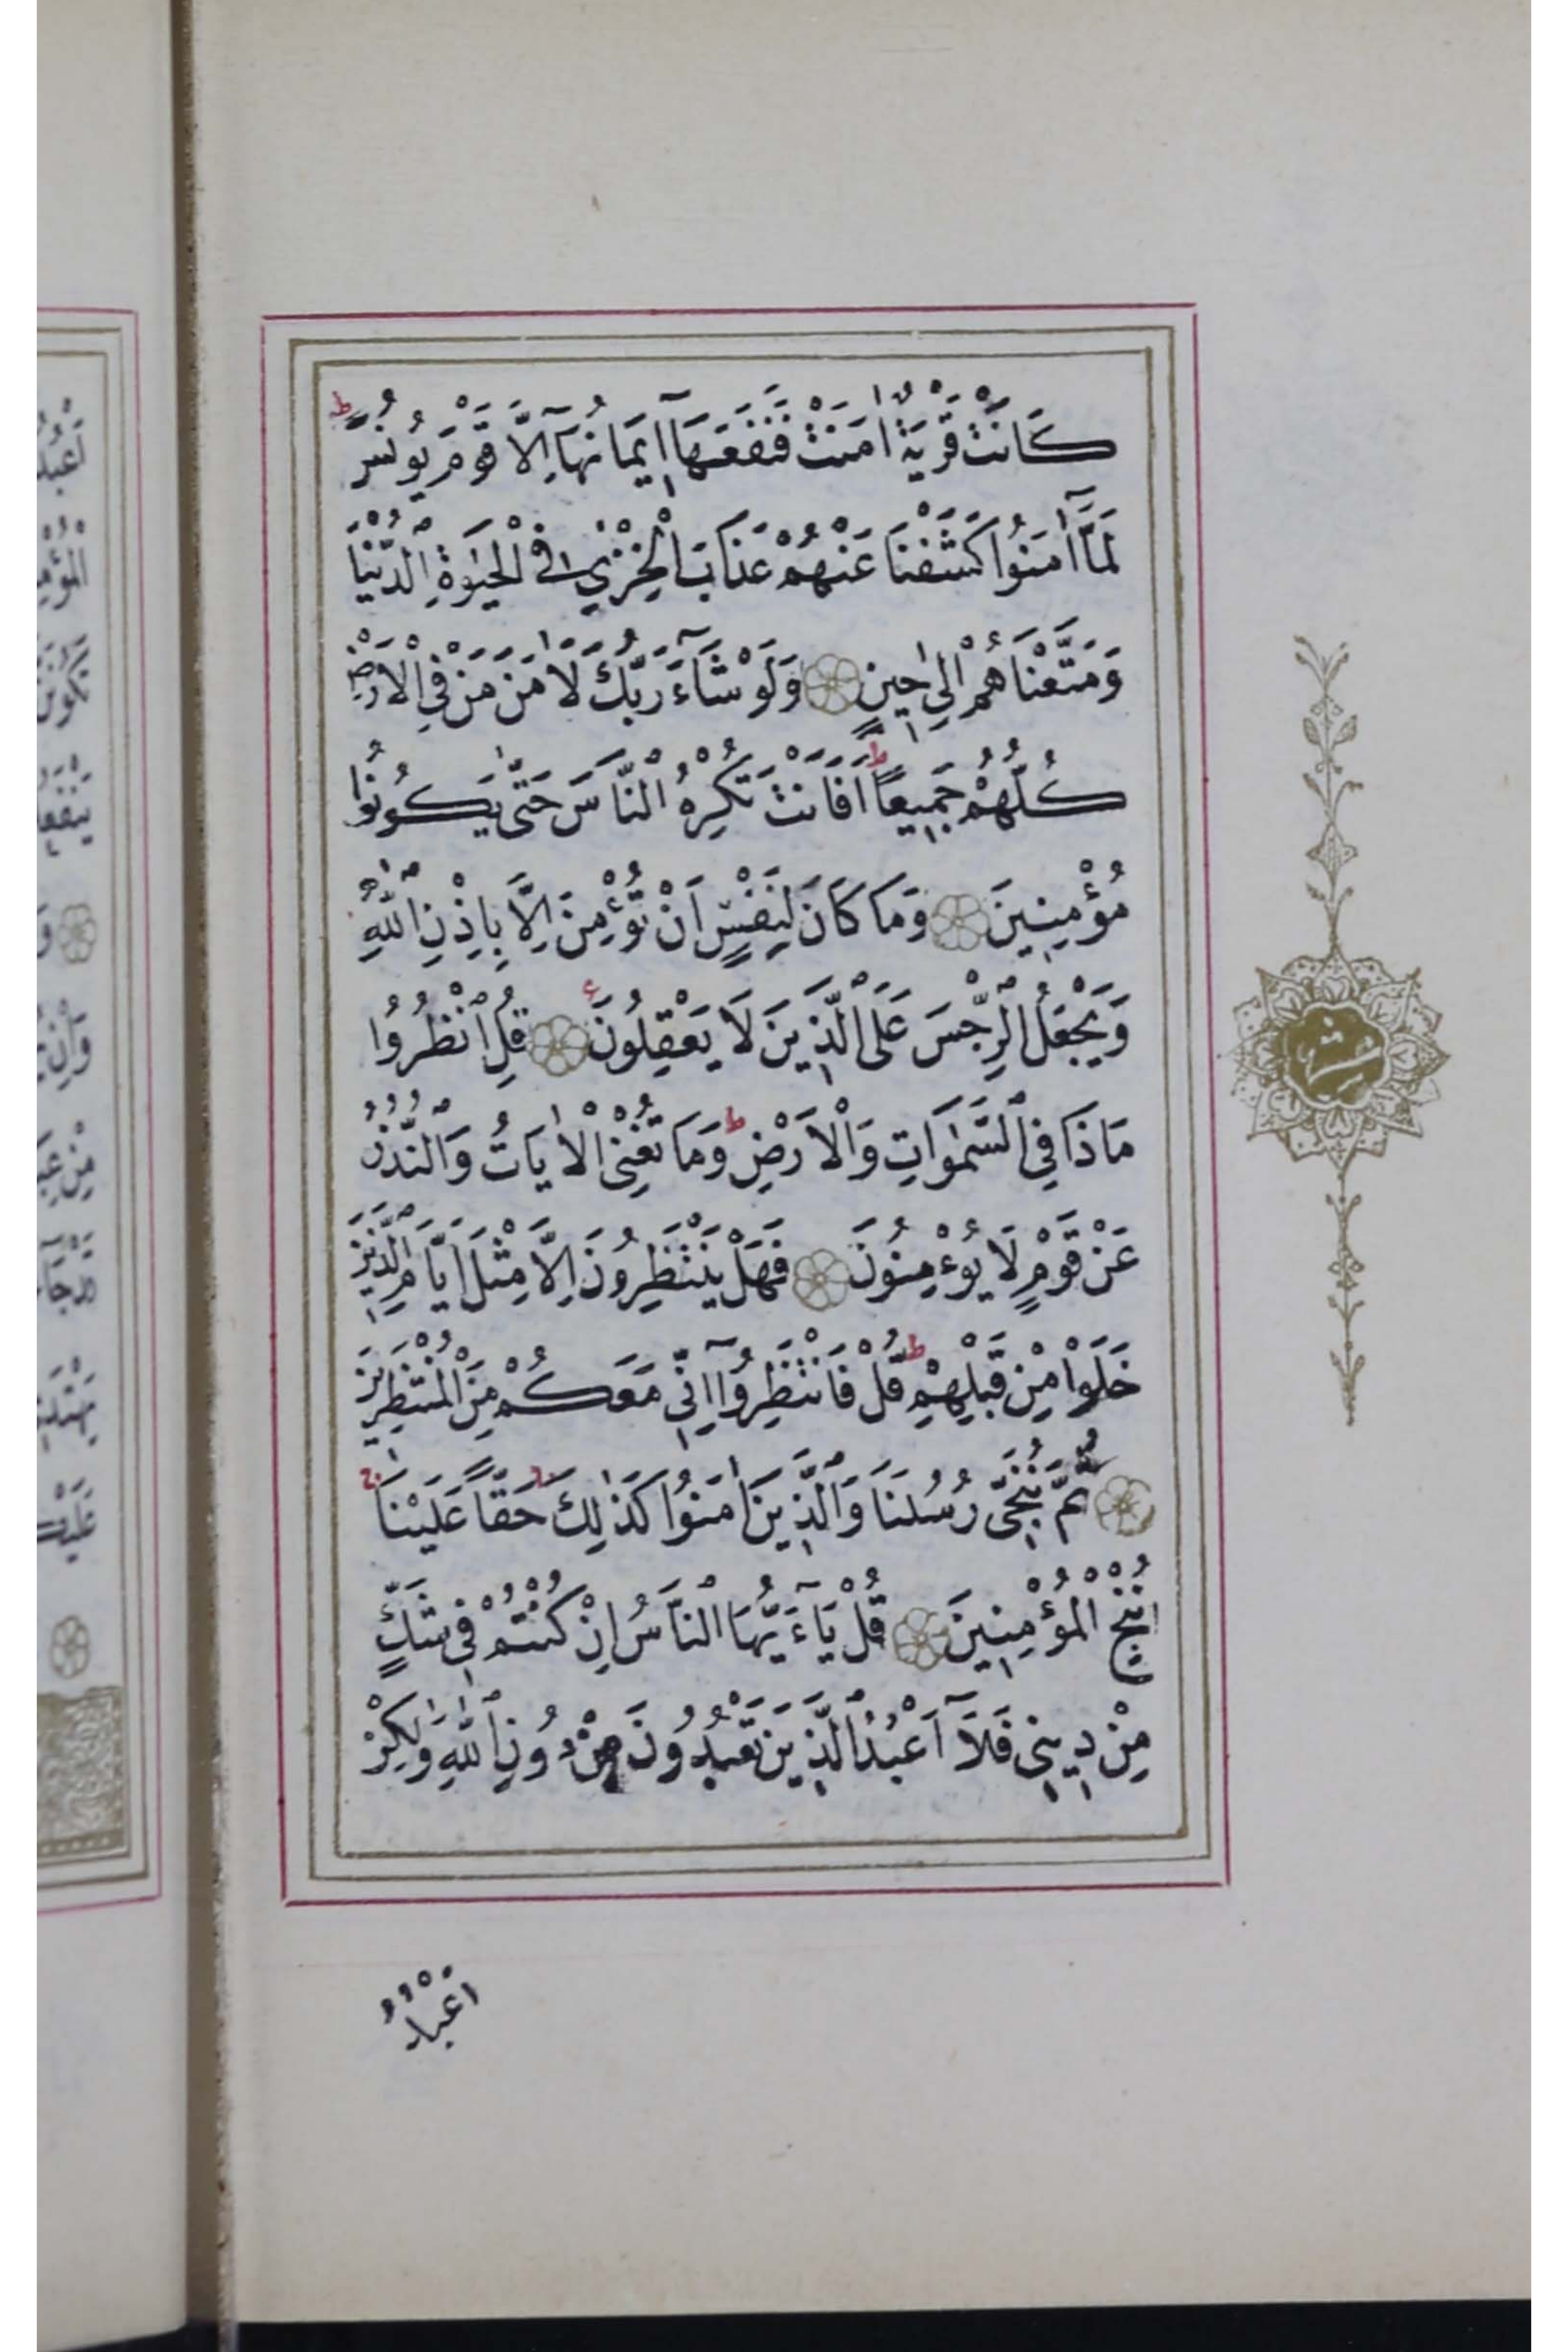 كَانَتْ قَرْيَةٌ اٰمَنَتْ فَنَفَعَهَٓا ا۪يمَانُهَٓا اِلَّا قَوْمَ يُونُسَ ط
لَمَّٓا اٰمَنُوا كَشَفْنَا عَنْهُمْ عَذَابَ الْخِزْيِ فِي الْحَيٰوةِ الدُّنْيَا
وَمَتَّعْنَاهُمْ اِلٰى ح۪ينٍ وَلَوْ شَٓاءَ رَبُّكَ لَاٰمَنَ مَنْ فِي الْاَرْضِ
كُلُّهُمْ جَم۪يعًا ط اَفَاَنْتَ تُكْرِهُ النَّاسَ حَتّٰى يَكُونُوا
مُؤْمِن۪ينَ وَمَا كَانَ لِنَفْسٍ اَنْ تُؤْمِنَ اِلَّا بِاِذْنِ اللّٰهِ
وَيَجْعَلُ الرِّجْسَ عَلَى الَّذ۪ينَ لَا يَعْقِلُونَ ع قُلِ انْظُرُوا
مَاذَا فِي السَّمٰوَاتِ وَالْاَرْضِ ط وَمَا تُغْنِي الْاٰيَاتُ وَالنُّذُرُ
عَنْ قَوْمٍ لَا يُؤْمِنُونَ فَهَلْ يَنْتَظِرُونَ اِلَّا مِثْلَ اَيَّامِ الَّذ۪ينَ
خَلَوْا مِنْ قَبْلِهِمْ ط قُلْ فَانْتَظِرُٓوا اِنّ۪ي مَعَكُمْ مِنَ الْمُنْتَظِر۪ينَ
ثُمَّ نُنَجّ۪ي رُسُلَنَا وَالَّذ۪ينَ اٰمَنُوا كَذٰلِكَ ج حَقًّا عَلَيْنَا ج
نُنْجِ الْمُؤْمِن۪ينَ قُلْ يَٓا اَيُّهَا النَّاسُ اِنْ كُنْتُمْ ف۪ي شَكٍّ
مِنْ د۪ين۪ي فَلَٓا اَعْبُدُ الَّذ۪ينَ تَعْبُدُونَ مِنْ دُونِ اللّٰهِ وَلٰكِنْ
اَعْبُدُ